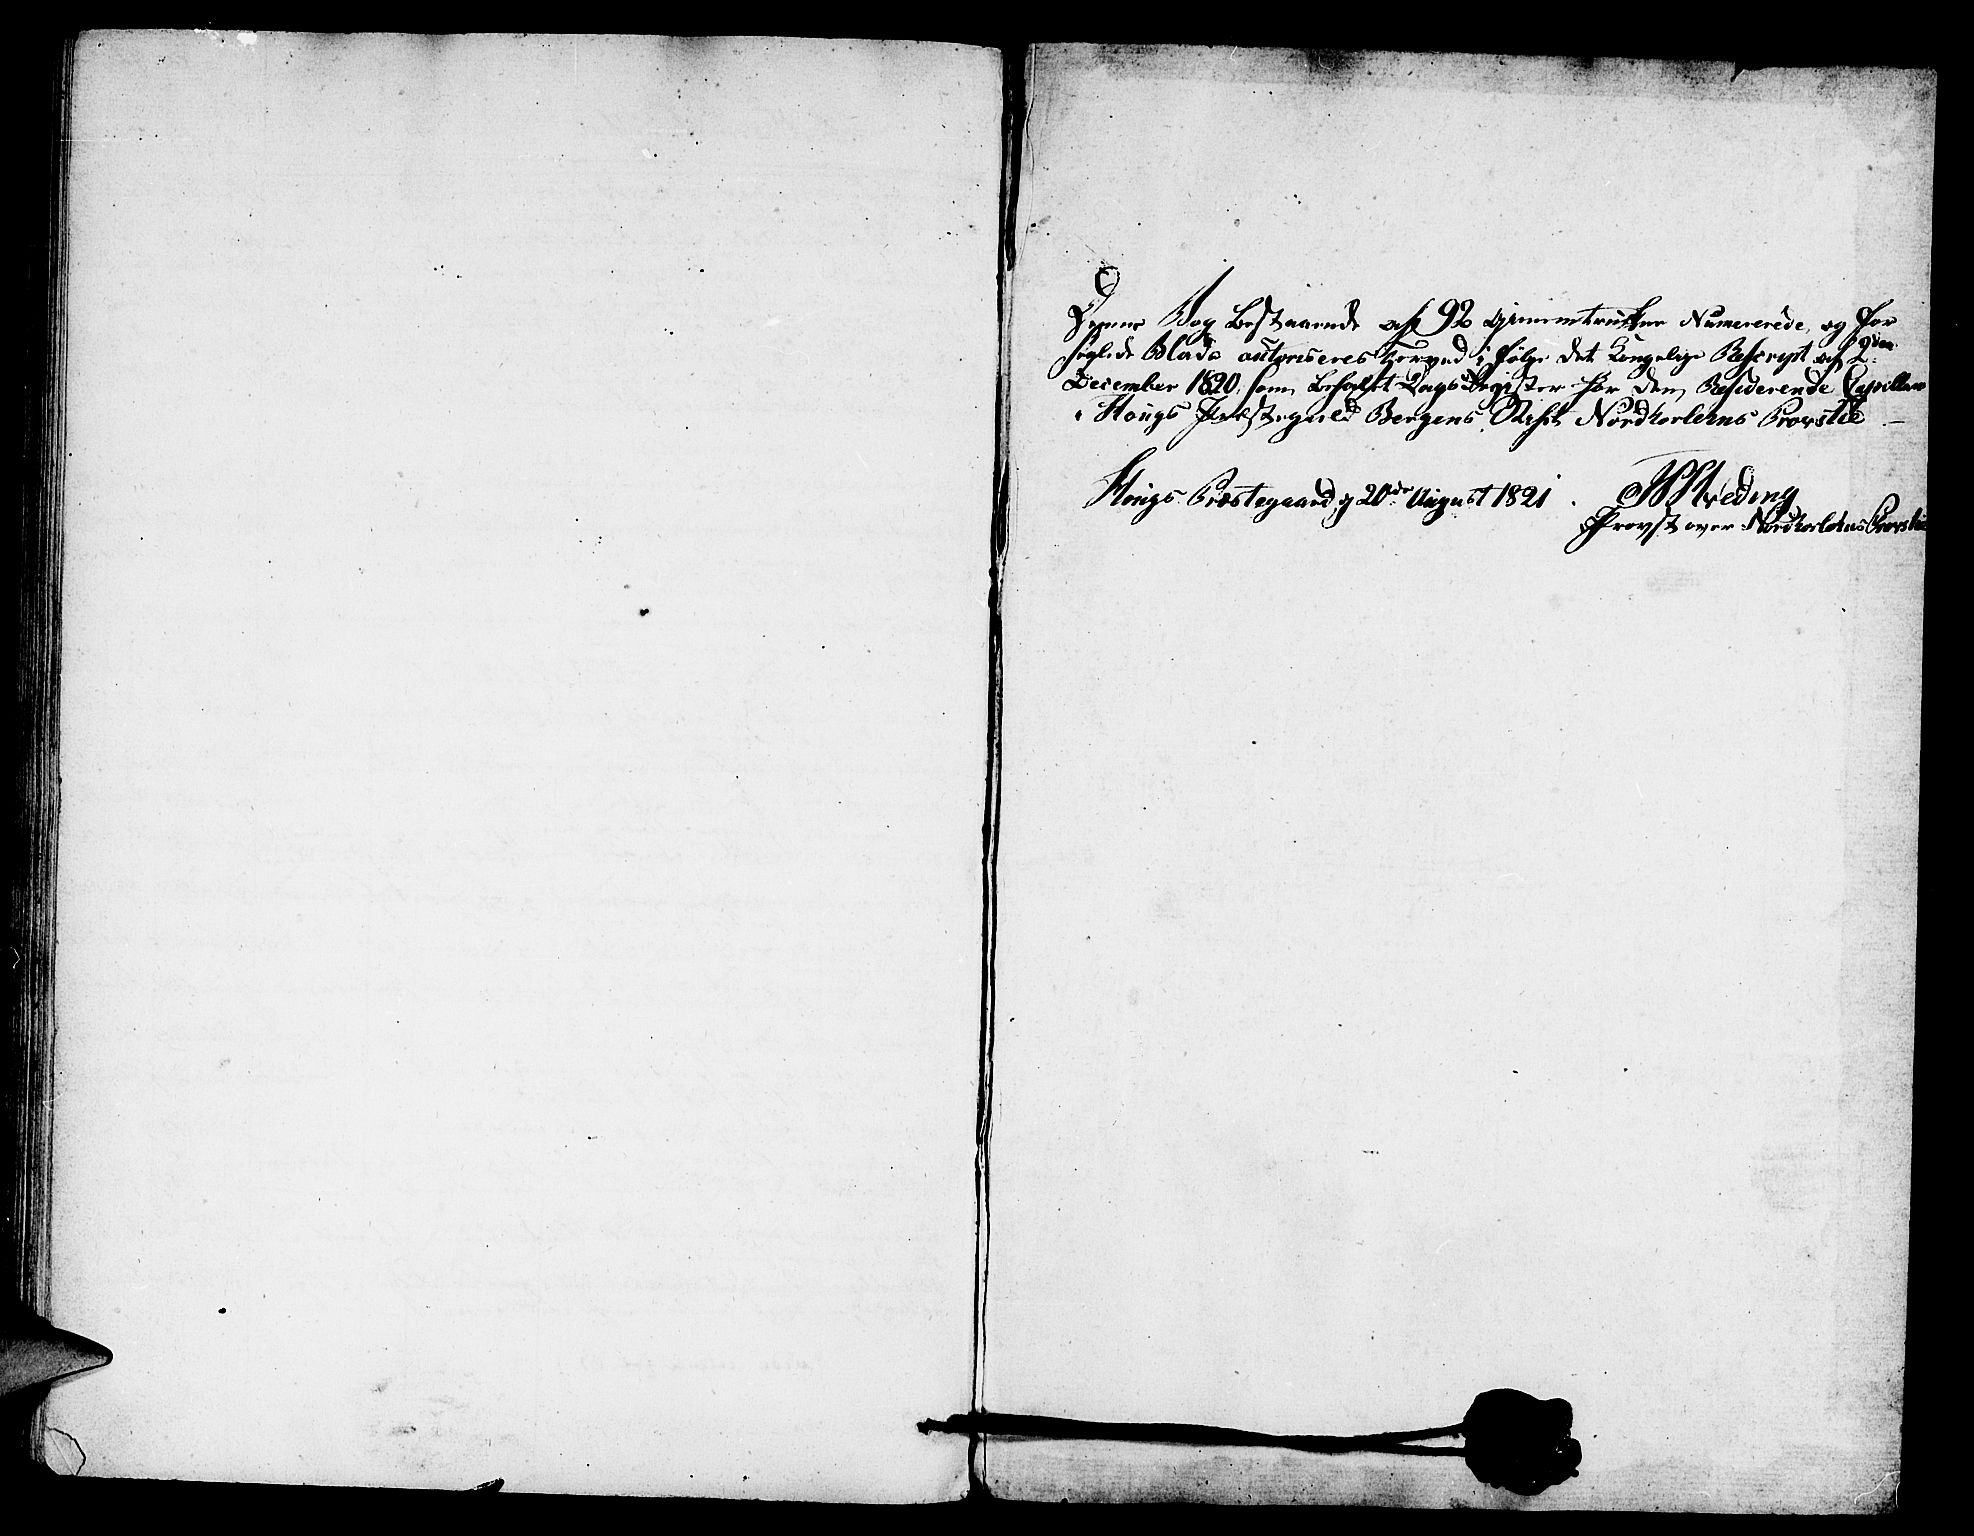 Denne Bog bestaaende af 92 giennemtrukne Numererede, og for
seglede Blade autoriseres herved i følge det Kongelige Rescript af 2den
December 1820 som befalet Dags Register for den Residerende Capellan
i Hougs Præstegield Bergens Stift Nordhorlehns Provstie
Hougs Præstegaard, d 20de August 1821.
Provst over Nordhorlehns Provstie